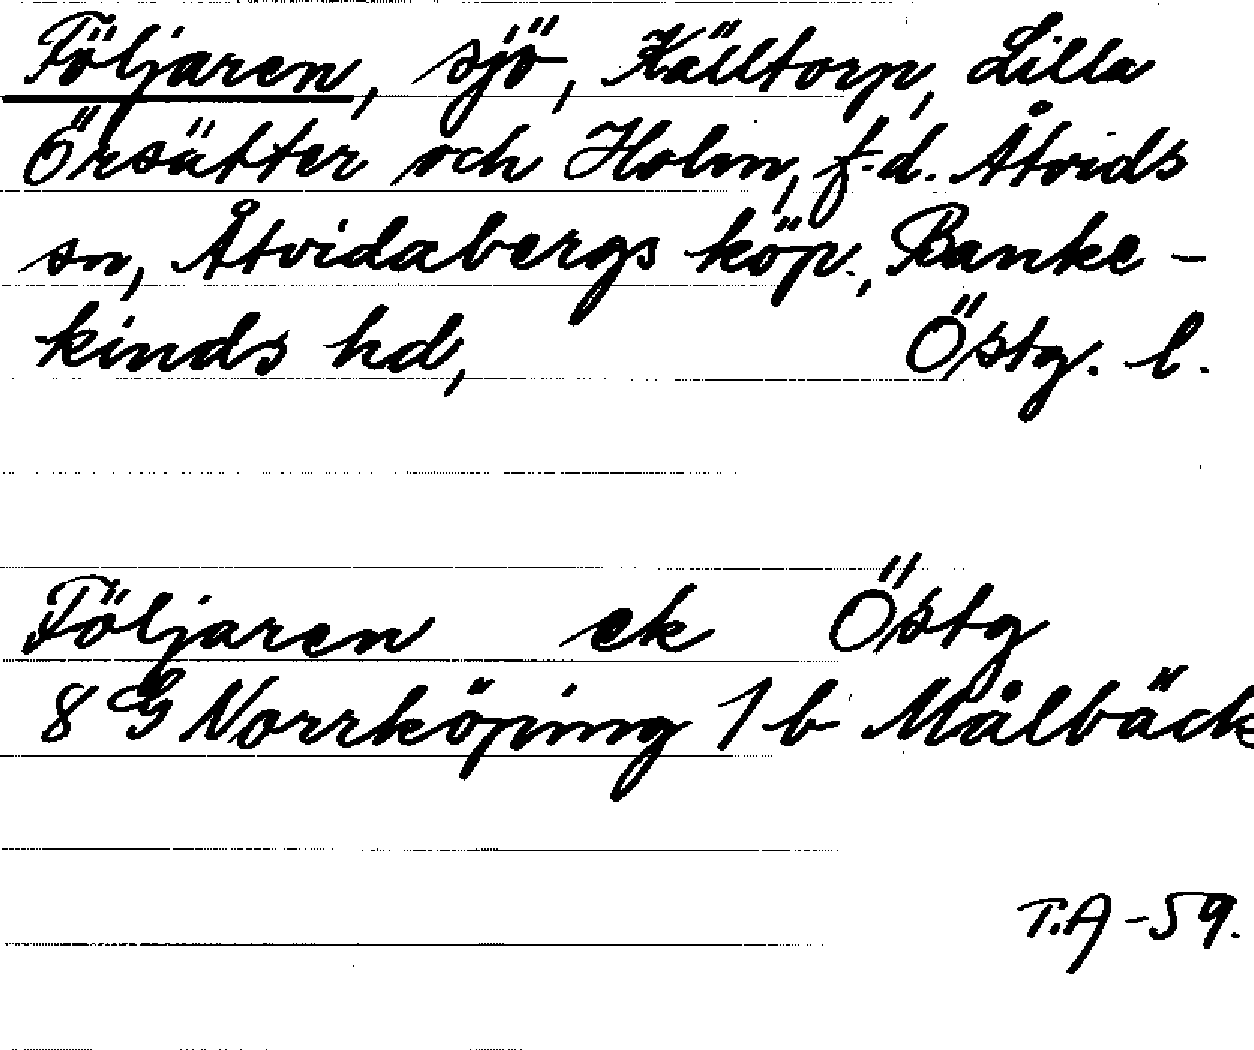 Följaren, sjö, Källtorp, Lilla
Örsätter och Holm, f.d. Åtvids
sn, Åtvidabergs köp., Banke-
kinds hd, Östg. l.
Följaren ek Östg
8 G Norrköping 1 b Målbäck
T.A -59.